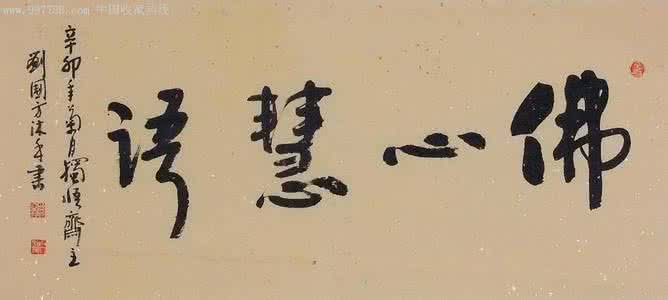 www.997788.com 中国收藏热线
佛心慧语
辛卯年菊月獨悟齋主
劉國方沐手書